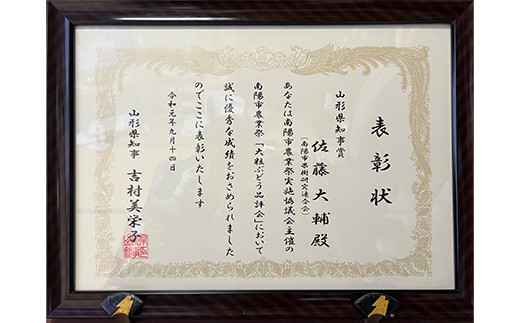 表彰状
山形県知事賞
(南陽市果樹研究連合会)
佐藤大輔殿
あなたは南陽市農業祭実施協議会主催の
南陽市農業祭「大粒ぶどう品評会」において
誠に優秀な成績をおさめられました
のでここに表彰いたします
令和元年九月十四日
山形県知事 吉村美栄子